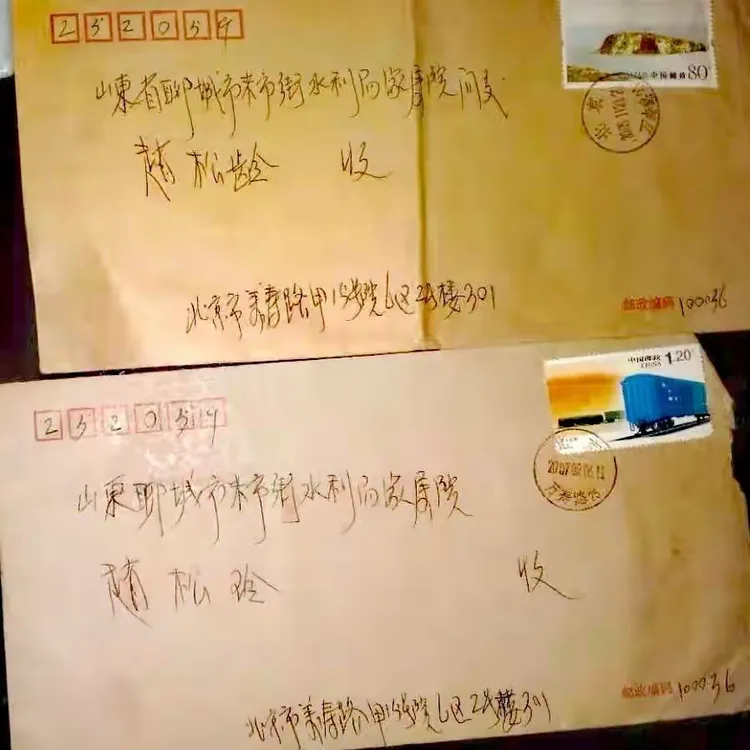 252054
中国邮政 80
山東省聊城市米市街水利局家属院间交
趙松龄 收
北京市萬寿路甲15号院6区2号楼301
邮政编码 100036
中国邮政 1.20
CHINA
252054
2007
山東聊城市米市街水利局家属院
趙松玲 收
北京市萬寿路甲15号院6区2号楼301
邮政编码 100036